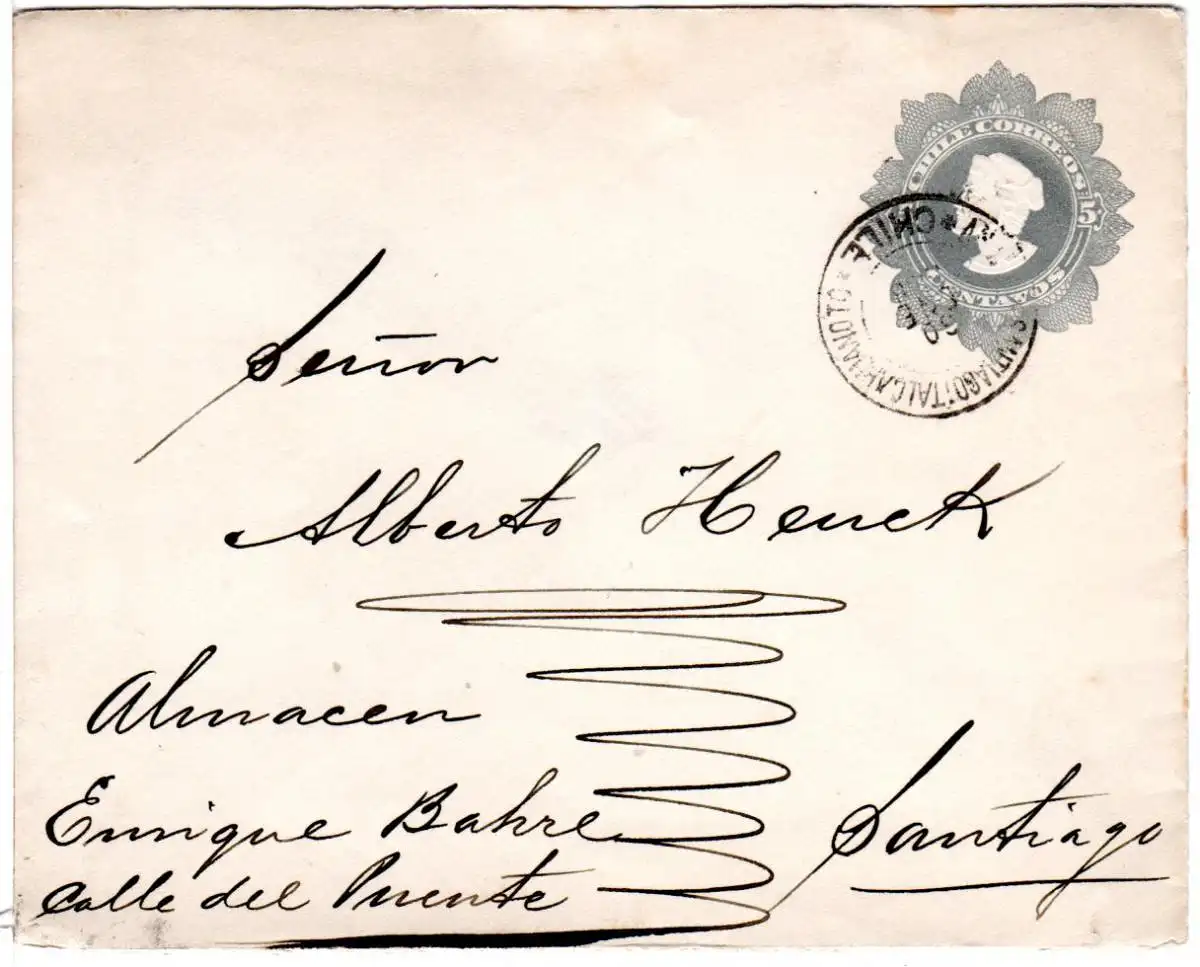 CHILE CORREOS
5
CENTAVOS
CHILE
SANTIAGO TALCAHUANO TO
Señor
Alberto Henck
Almacen
Enrique Bahre
Calle del Puente
Santiago